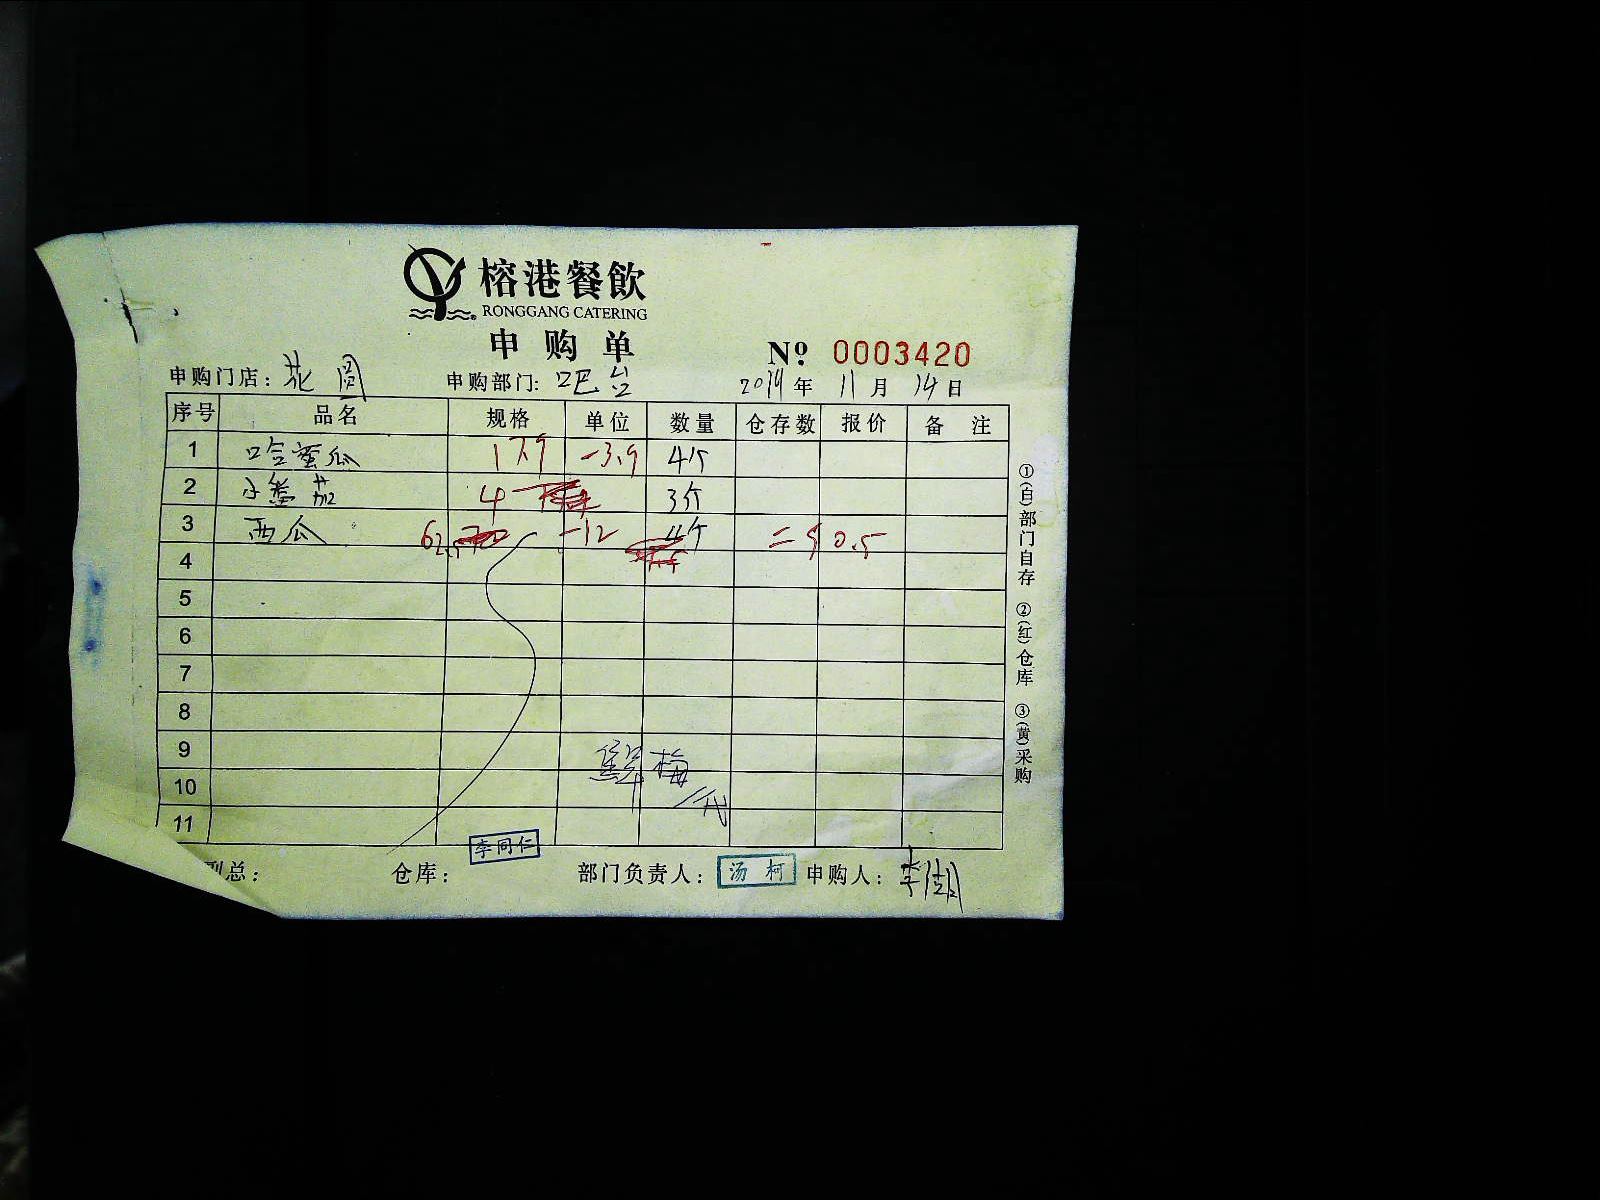 榕港餐飲
RONGGANG CATERING
申购单
№ 0003420
申购门店: 花园 申购部门: 吧台 2014年 11月 14日
序号 品名 规格 单位 数量 仓存数 报价 备注
1 哈蜜瓜 17.9 -3.9 4个
2 小番茄 4 3个
3 西瓜 62.5 -12 4个 =50.5
4
5
6
7
8
9
10
11
梅
代
副总: 仓库: 李同仁 部门负责人: 汤柯 申购人: 李
①(白)部门自存 ②(红)仓库 ③(黄)采购